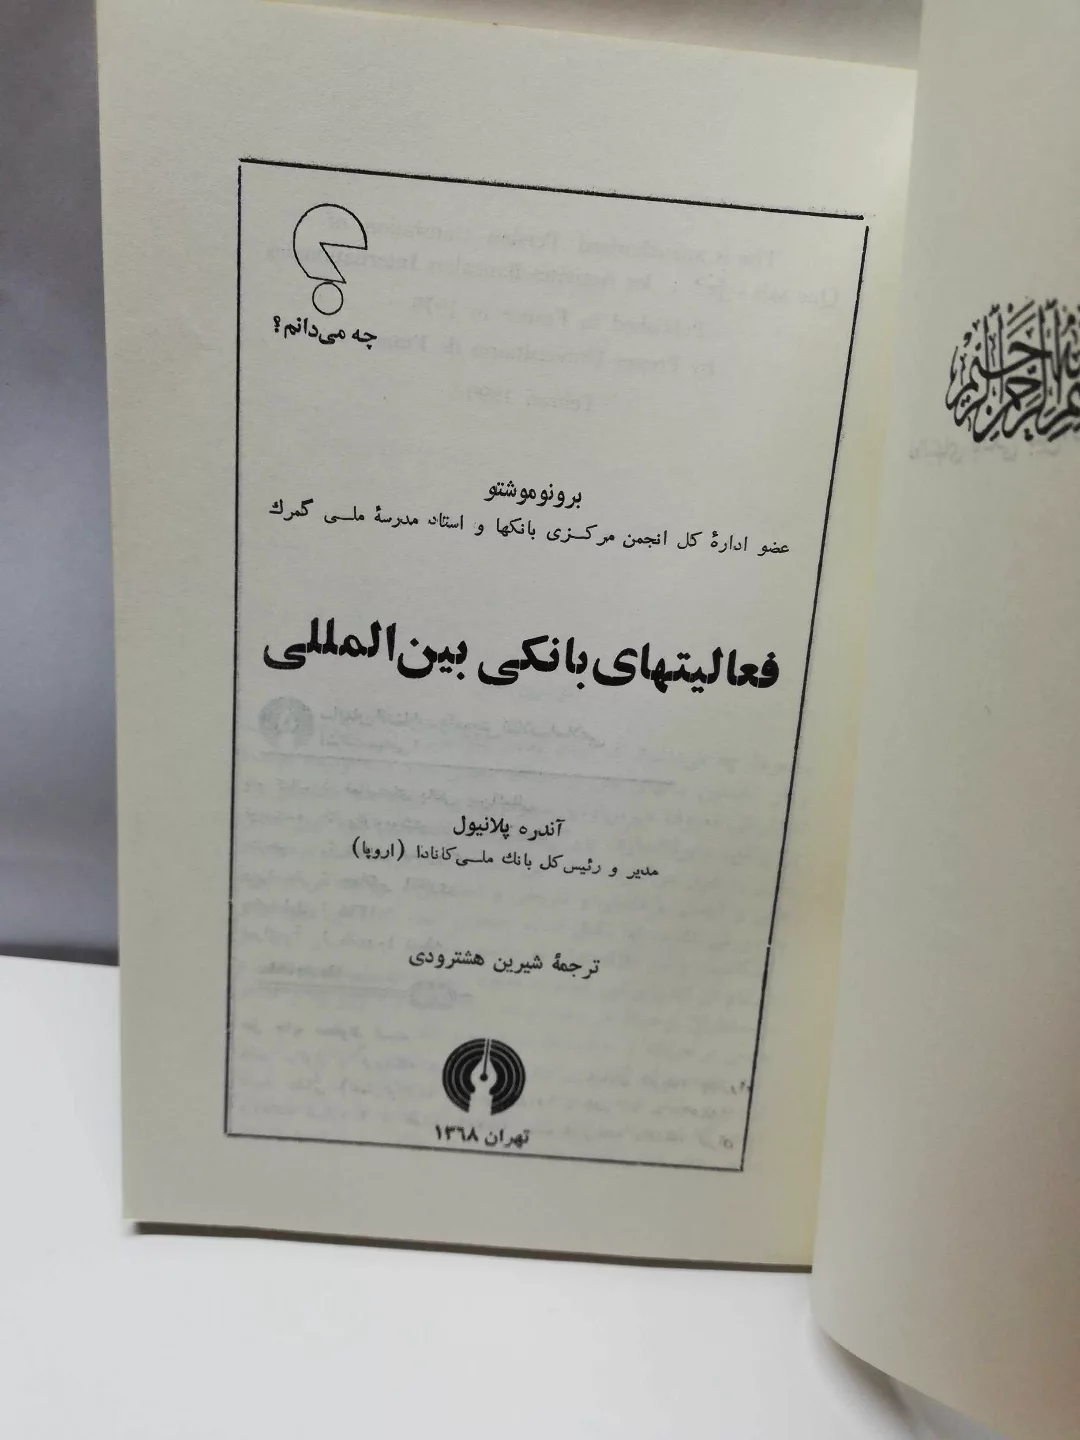 چه می‌دانم؟
برونو موشتو
عضو ادارهٔ کل انجمن مرکزی بانکها و استاد مدرسهٔ ملی گمرك
فعالیتهای بانکی بین‌المللی
آندره پلانیول
مدیر و رئیس کل بانك ملی کانادا (اروپا)
ترجمهٔ شیرین هشترودی
تهران ۱۳۶۸